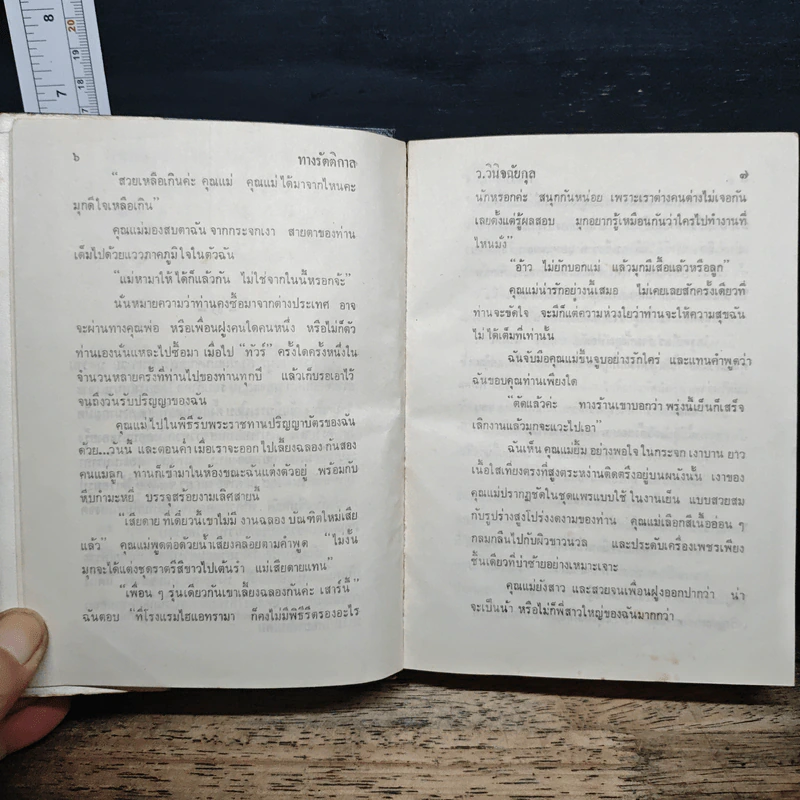 8
7
20
19
18
17
๖ ทางรัตติกาล
“สวยเหลือเกินค่ะ คุณแม่ คุณแม่ได้มาจากไหนคะ
มุกดีใจเหลือเกิน”
คุณแม่มองสบตาฉัน จากกระจกเงา สายตาของท่าน
เต็มไปด้วยแววภาคภูมิใจในตัวฉัน
“แม่หามาให้ได้ก็แล้วกัน ไม่ใช่จากในนี้หรอกจ้ะ”
นั่นหมายความว่าท่านคงซื้อมาจากต่างประเทศ อาจ
จะผ่านทางคุณพ่อ หรือเพื่อนฝูงคนใดคนหนึ่ง หรือไม่ก็ตัว
ท่านเองนั่นแหละไปซื้อมา เมื่อไป “ทัวร์” ครั้งใดครั้งหนึ่งใน
จำนวนหลายครั้งที่ท่านไปของท่านทุกปี แล้วเก็บรอเอาไว้
จนถึงวันรับปริญญาของฉัน
คุณแม่ไปในพิธีรับพระราชทานปริญญาบัตรของฉัน
ด้วย...วันนี้ และตอนค่ำ เมื่อเราจะออกไปเลี้ยงฉลอง กันสอง
คนแม่ลูก ท่านก็เข้ามาในห้องขณะฉันแต่งตัวอยู่ พร้อมกับ
หีบกำมะหยี่ บรรจุสร้อยงามเลิศสายนี้
“เสียดาย ที่เดี๋ยวนี้เขาไม่มี งานฉลอง บัณฑิตใหม่เสีย
แล้ว” คุณแม่พูดต่อด้วยน้ำเสียงคล้อยตามคำพูด “ไม่งั้น
มุกจะได้แต่งชุดราตรีสีขาวไปเต้นรำ แม่เสียดายแทน”
“เพื่อน ๆ รุ่นเดียวกันเขาเลี้ยงฉลองกันค่ะ เสาร์นี้”
ฉันตอบ “ที่โรงแรมไฮแอทรามา ก็คงไม่มีพิธีรีตรองอะไร
ว.วินิจฉัยกุล ๗
นักหรอกค่ะ สนุกกันหน่อย เพราะเราต่างคนต่างไม่เจอกัน
เลยตั้งแต่รู้ผลสอบ มุกอยากรู้เหมือนกันว่าใครไปทำงานที่
ไหนมั่ง”
“อ้าว ไม่ยักบอกแม่ แล้วมุกมีเสื้อแล้วหรือลูก”
คุณแม่น่ารักอย่างนี้เสมอ ไม่เคยเลยสักครั้งเดียวที่
ท่านจะขัดใจ จะมีก็แต่ความห่วงใยว่าท่านจะให้ความสุขฉัน
ไม่ได้เต็มที่เท่านั้น
ฉันจับมือคุณแม่ขึ้นจูบอย่างรักใคร่ และแทนคำพูดว่า
ฉันขอบคุณท่านเพียงใด
“ตัดแล้วค่ะ ทางร้านเขาบอกว่า พรุ่งนี้เย็นก็เสร็จ
เลิกงานแล้วมุกจะแวะไปเอา”
ฉันเห็น คุณแม่ยิ้ม อย่างพอใจ ในกระจก เงาบาน ยาว
เนื้อใสเที่ยงตรงที่สูงตระหง่านติดตรึงอยู่บนผนังนั้น เงาของ
คุณแม่ปรากฏชัดในชุดแพรแบบใช้ ในงานเย็น แบบสวยสม
กับรูปร่างสูงโปร่งงดงามของท่าน คุณแม่เลือกสีเนื้ออ่อน ๆ
กลมกลืนไปกับผิวขาวนวล และประดับเครื่องเพชรเพียง
ชิ้นเดียวที่บ่าซ้ายอย่างเหมาะเจาะ
คุณแม่ยังสาว และสวยจนเพื่อนฝูงออกปากว่า น่า
จะเป็นน้า หรือไม่ก็พี่สาวใหญ่ของฉันมากกว่า